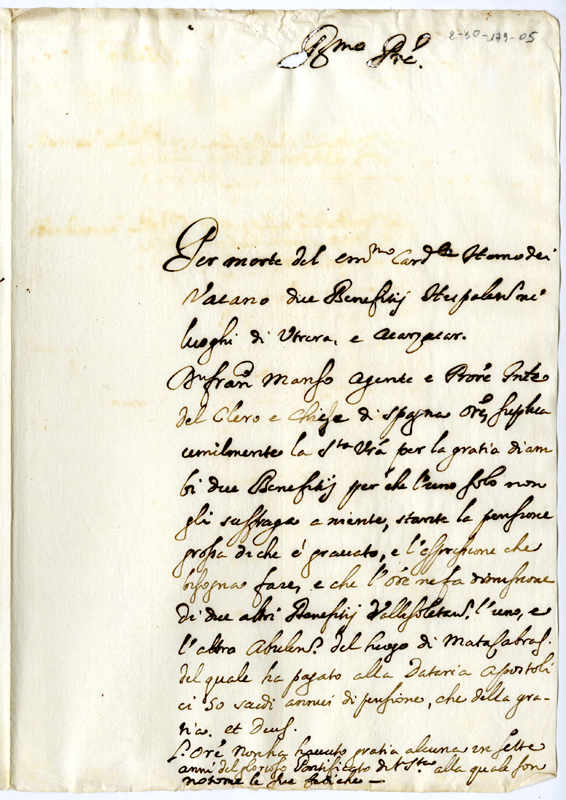 2-50-179-05
Bmo Pre.
Per morte del emmo Cardle Homodei
Vacano due Benefitij Hispalens ne
luoghi di Utrera, e
Dn Franco Manso Agente e Prore Gnle
del Clero e Chiese di Spagna Ore, suplica
umilmente la Sta Vra per la gratia diam
bi due Benefitij per che l'uno solo non
gli suffraga a niente, stante la pensione
grossa di che è gravato, e l'espressione che
bisogna fare, e che l'Ore ne fa dimissione
di due altri Benefitij Vallesoletans. l'uno, e
l'altro Abulens. del luogo di Matacabras.
del quale ha pagato alla Dataria Apostoli
ci 50 scudi annui di pensione, che della gra-
tia. et Deus.
L'Ore non ha havuto gratia alcuna in sette
anni del glorioso Pontificato di V Sta alla quale son
notorie le sue fatiche